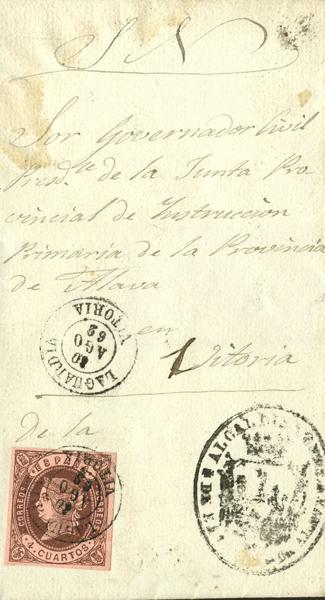 S N
Sor Governador Civil
Presd.te de la Junta Pro
vincial de Instruccion
Primaria de la Provincia
de Alava
en
Vitoria
de la
LAGUARDIA
20
AGO
62
VITORIA
ESPAÑA
CORREOS
CORREOS
4 CUARTOS
VITORIA
AGO
ALCALDIA